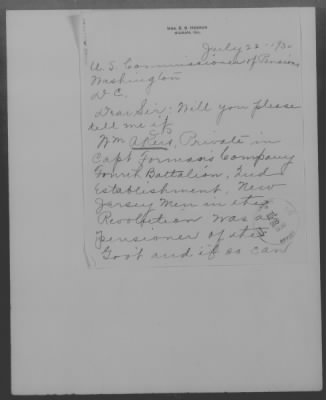 July 22-1930
U.S. Commissioner of Pensions
Washington
D.C.
Dear Sir: Will you please
tell me if
Wm Akers, Private in
Capt Forman's Company
Fourth Battalion, 2nd
Establishment, New
Jersey Men in the
Revolution was a
pensioner of the
Gov't and if so can